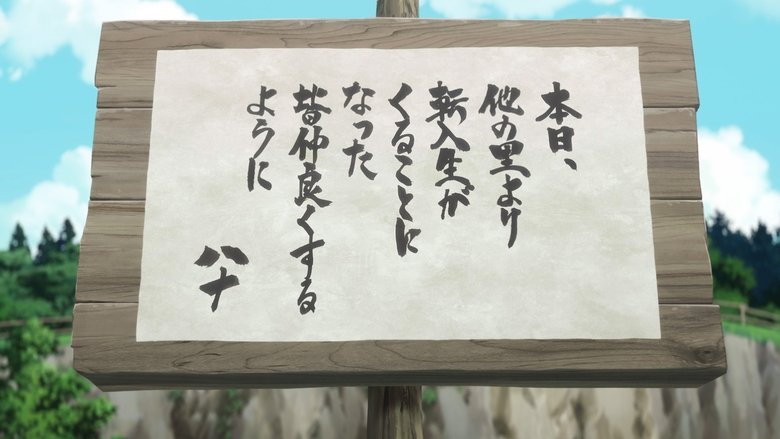 本日、
他の里より
転入生が
くることに
なった
皆仲良くする
ように
ハナ